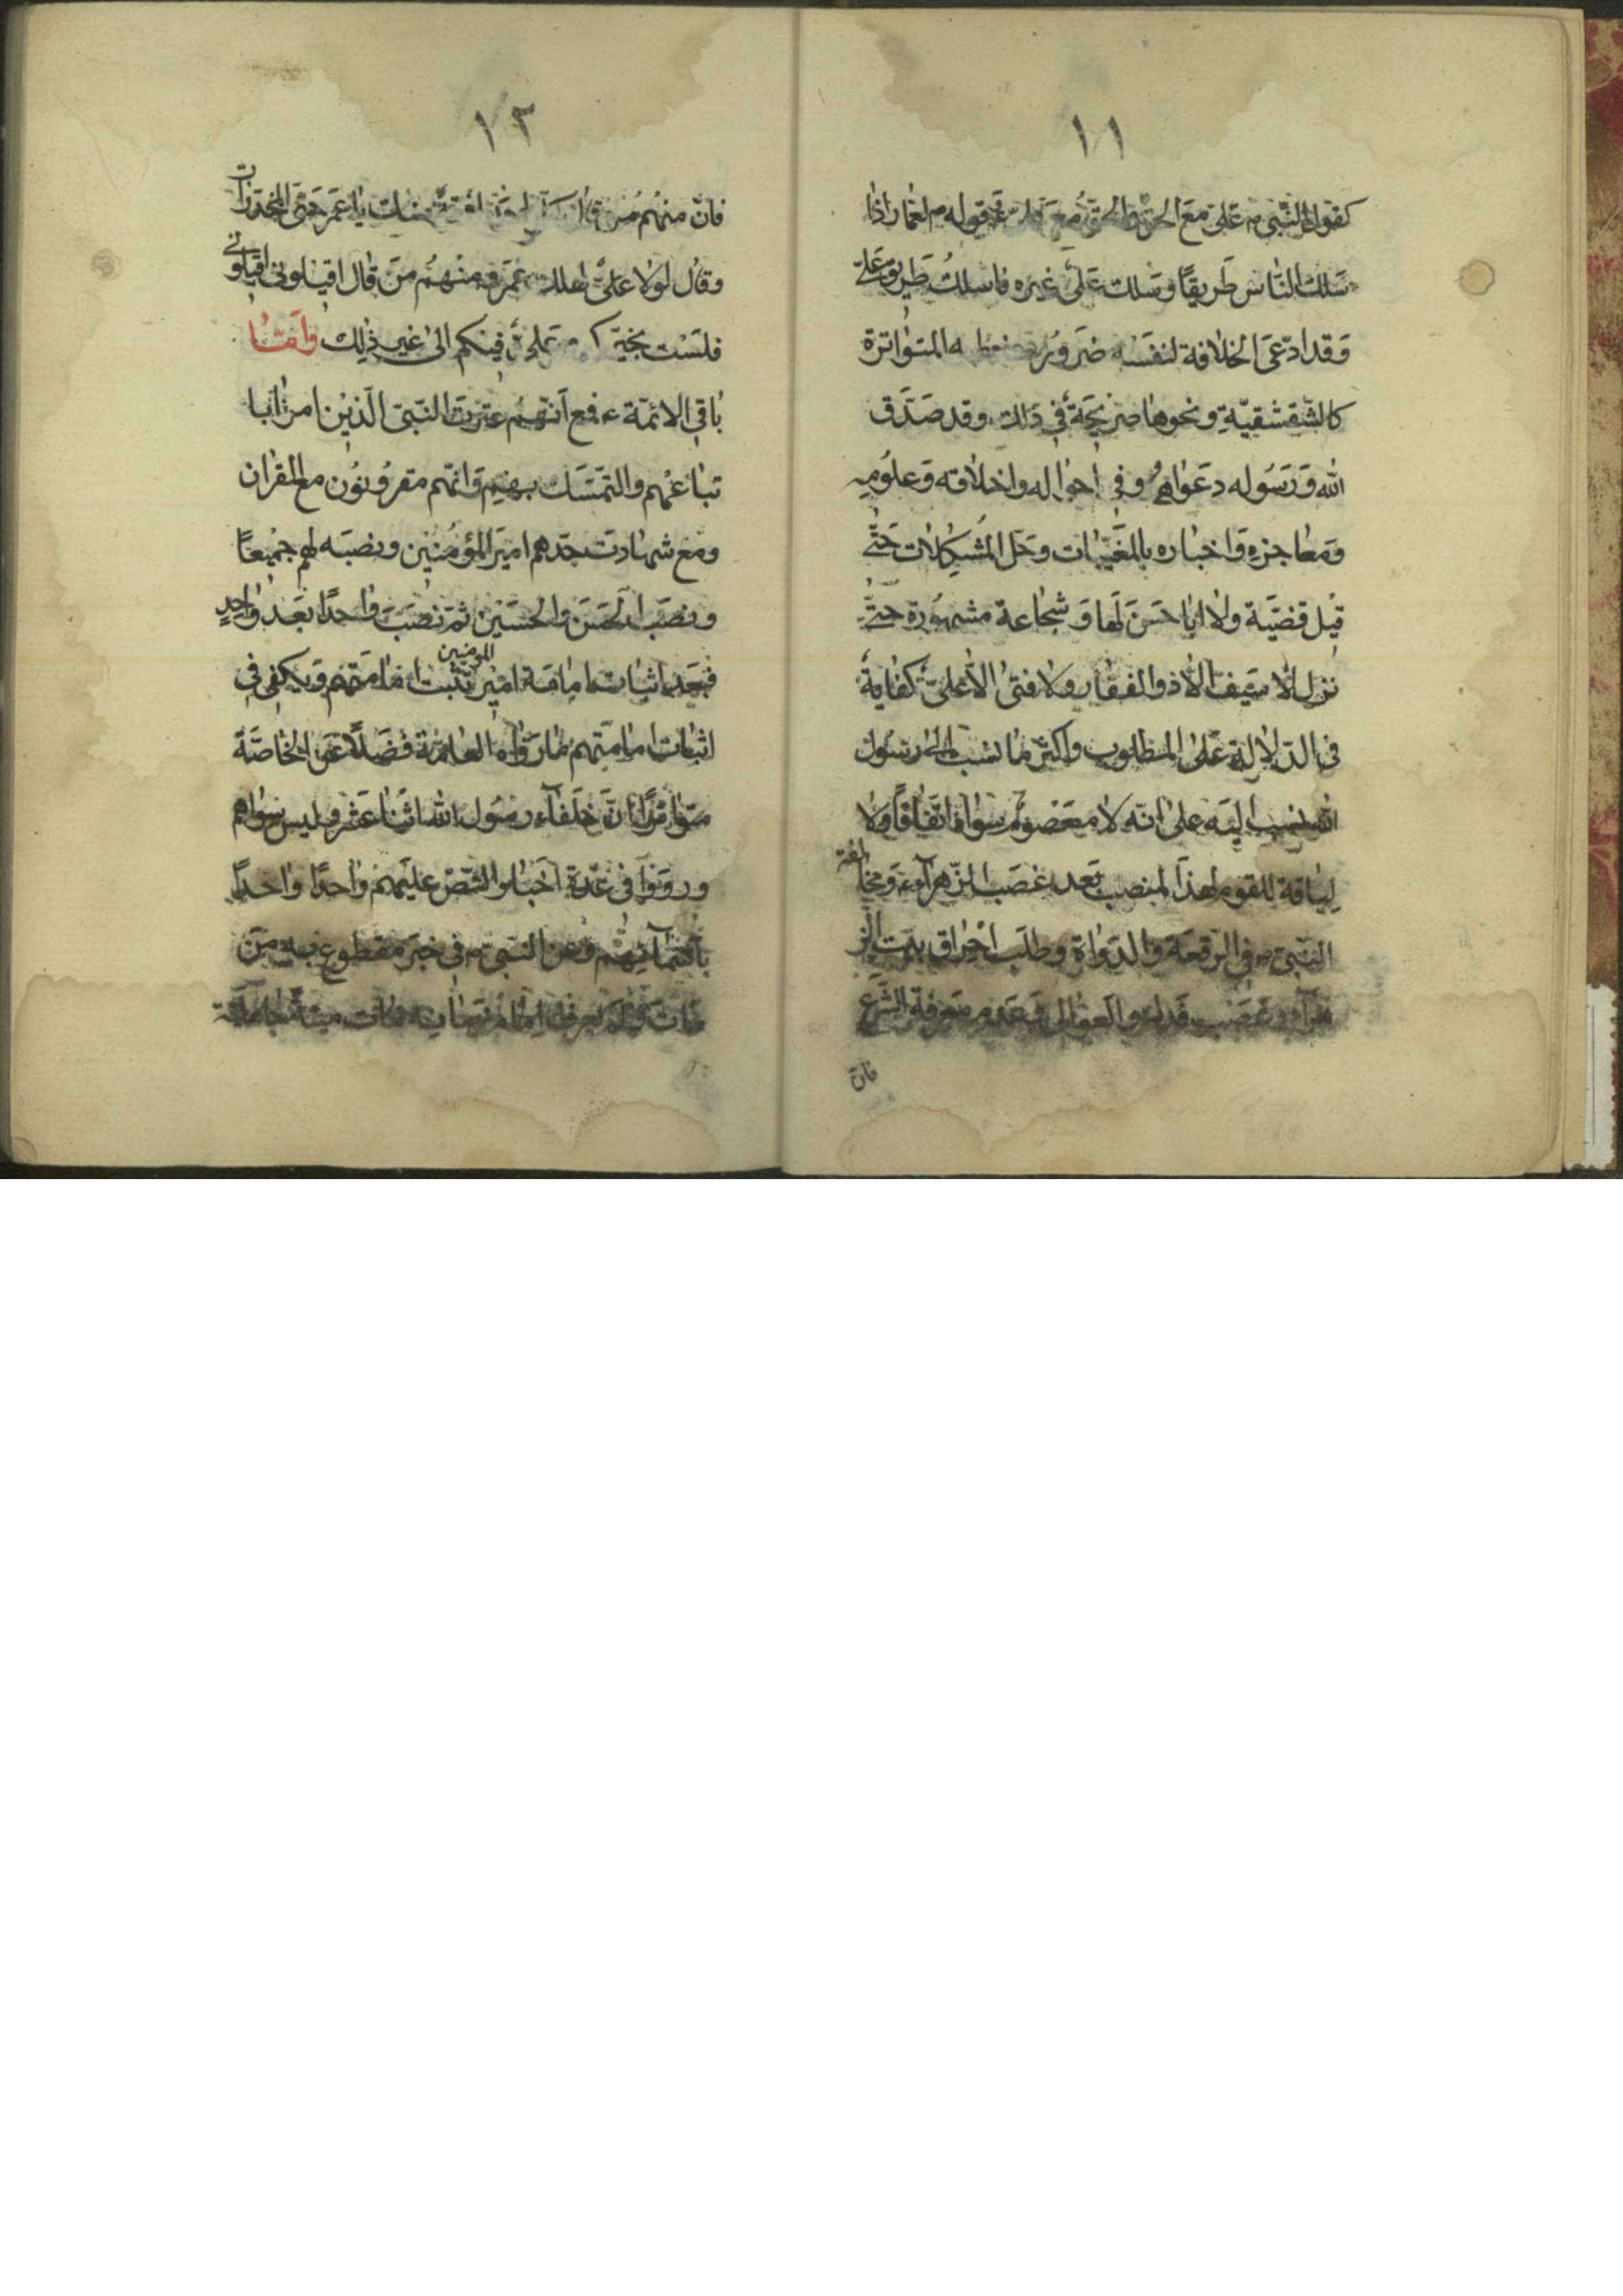 ١١
كقول النّبى ص علىّ مع الحقّ والحقّ مع علىّ و قوله ص لعمار اذا
سَلك النّاس طَريقًا وسَلك عَلىّ غيره فاسلك طَريق عَلىّ
وَقد ادّعَى الخلافة لنفسه ضَرورة المتواترة
كالشّقشقيّة ونحوها صريحَة فى ذلك وقد صَدّق
الله وَرَسُوله دعَواه وفى احواله واخلاقه وَعلومه
وَمعاجزه وَاخباره بالمغَيّبات وحَل المُشكلات حَتّى
قيل قضيّة ولا ابا حسَن لَها وَشجاعة مشهُورة حتّى
نزل لا سَيف الّا ذوالفقار ولا فتى الّا علىّ كفاية
فى الدّلالة عَلى المطلوب واكثر ما نسب الى رسُول
الله نسب اليَه على انّه لا معصوم سواه اتّفاقًا ولا
لياقة للقوم لهذا المنصب بَعد غصَب الزّهرآء وَمخالفة
النّبى ص فى الرّقعَة والدّواة وطلَب احْراق بيت الز
هرآء وغصَب فَدك والعوالى وَعَدم مَعرفة الشّرع
فانّ
١٢
فانّ منهُم مَن قال يا عمَر حَتّى المخدّرات
وقال لولا علىّ لهلك عمَر ومنهُم مَن قال اقيلونى اقيلونى
فلَسْت بخيركم وعلىّ فيكم الى غير ذلك وَامّا
باقى الائمّة ع فمع اَنّهم عترت النّبى الّذين امرنا با
تباعهم والتّمسّك بهم وَانّهم مقرُونُون مع القران
ومَع شهادت جدّهم اميَر المؤمنين ونصبَه لهم جميعًا
ونصَب الحَسَن والحسَين ثمّ نصَبَ واحدًا بعَد واحدٍ
فبَعد اثبات امامة امير المؤمنين تثبت امامَتهم وَيكفى فى
اثبات امامتهم ما رَواه العامّة فضَلًا عَن الخاصّة
متواترًا انّ خلَفآء رسُول الله اثنا عَشر وليس سواهم
ورووَا فى عدّة اَخبار النّصّ عليَهم واحدًا واحدًا
باَسمآئهم وَعن النّبى ص فى خبَر مقطوع به مَن
مات وَلم يعرف امام زمَانه مات ميتةً جاهليّة